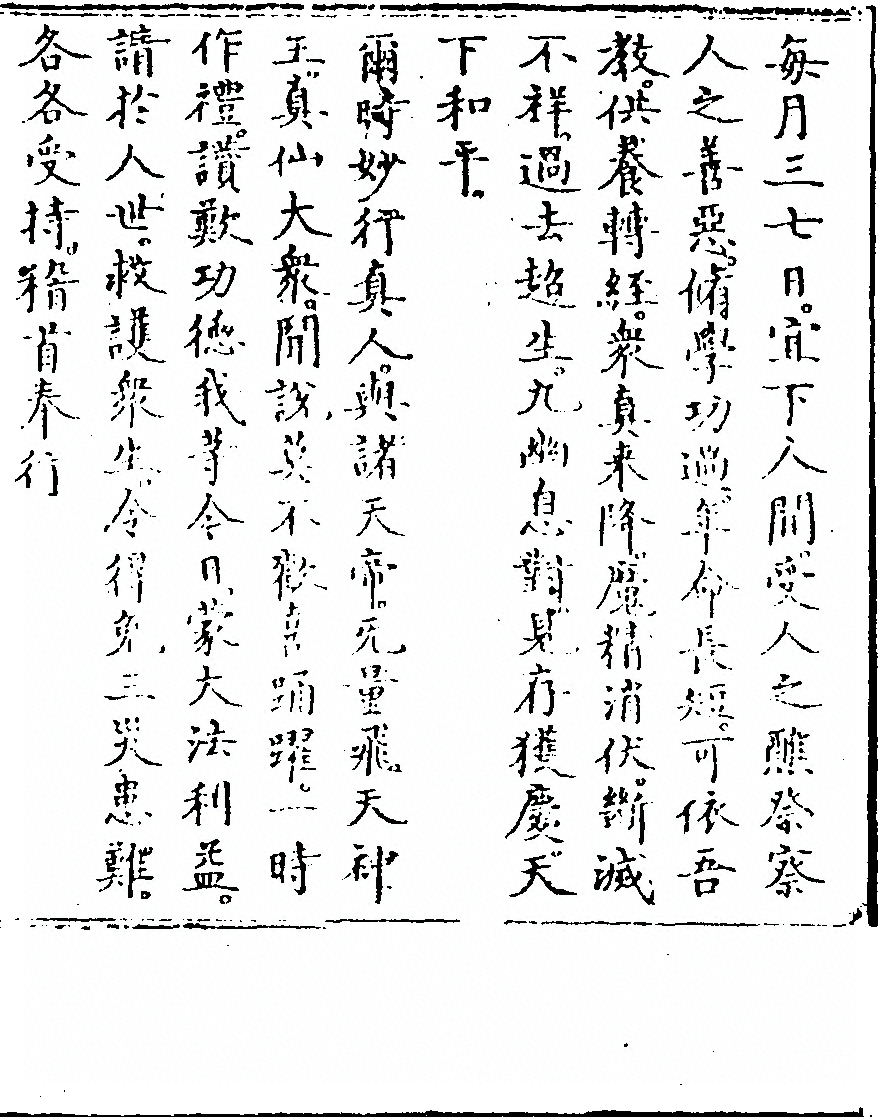 每月三七日。宜下人間。受人之醮祭察
人之善惡。脩學功過。年命長短。可依吾
教。供養轉經。衆真来降。魔精消伏。斷滅
不祥。過去超生。九幽息對。見存獲慶。天
下和平。
爾時妙行真人。與諸天帝。无量飛天神
王。真仙大衆。聞說。莫不歡喜踊躍。一時
作禮。讚歎功德我等今日。蒙大法利益。
請於人世。救護衆生。令得免。三災患難。
各各受持。稽首奉行